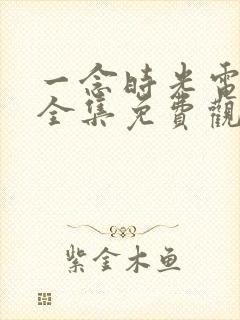 一念時光電
全集免費觀
紫金木鱼